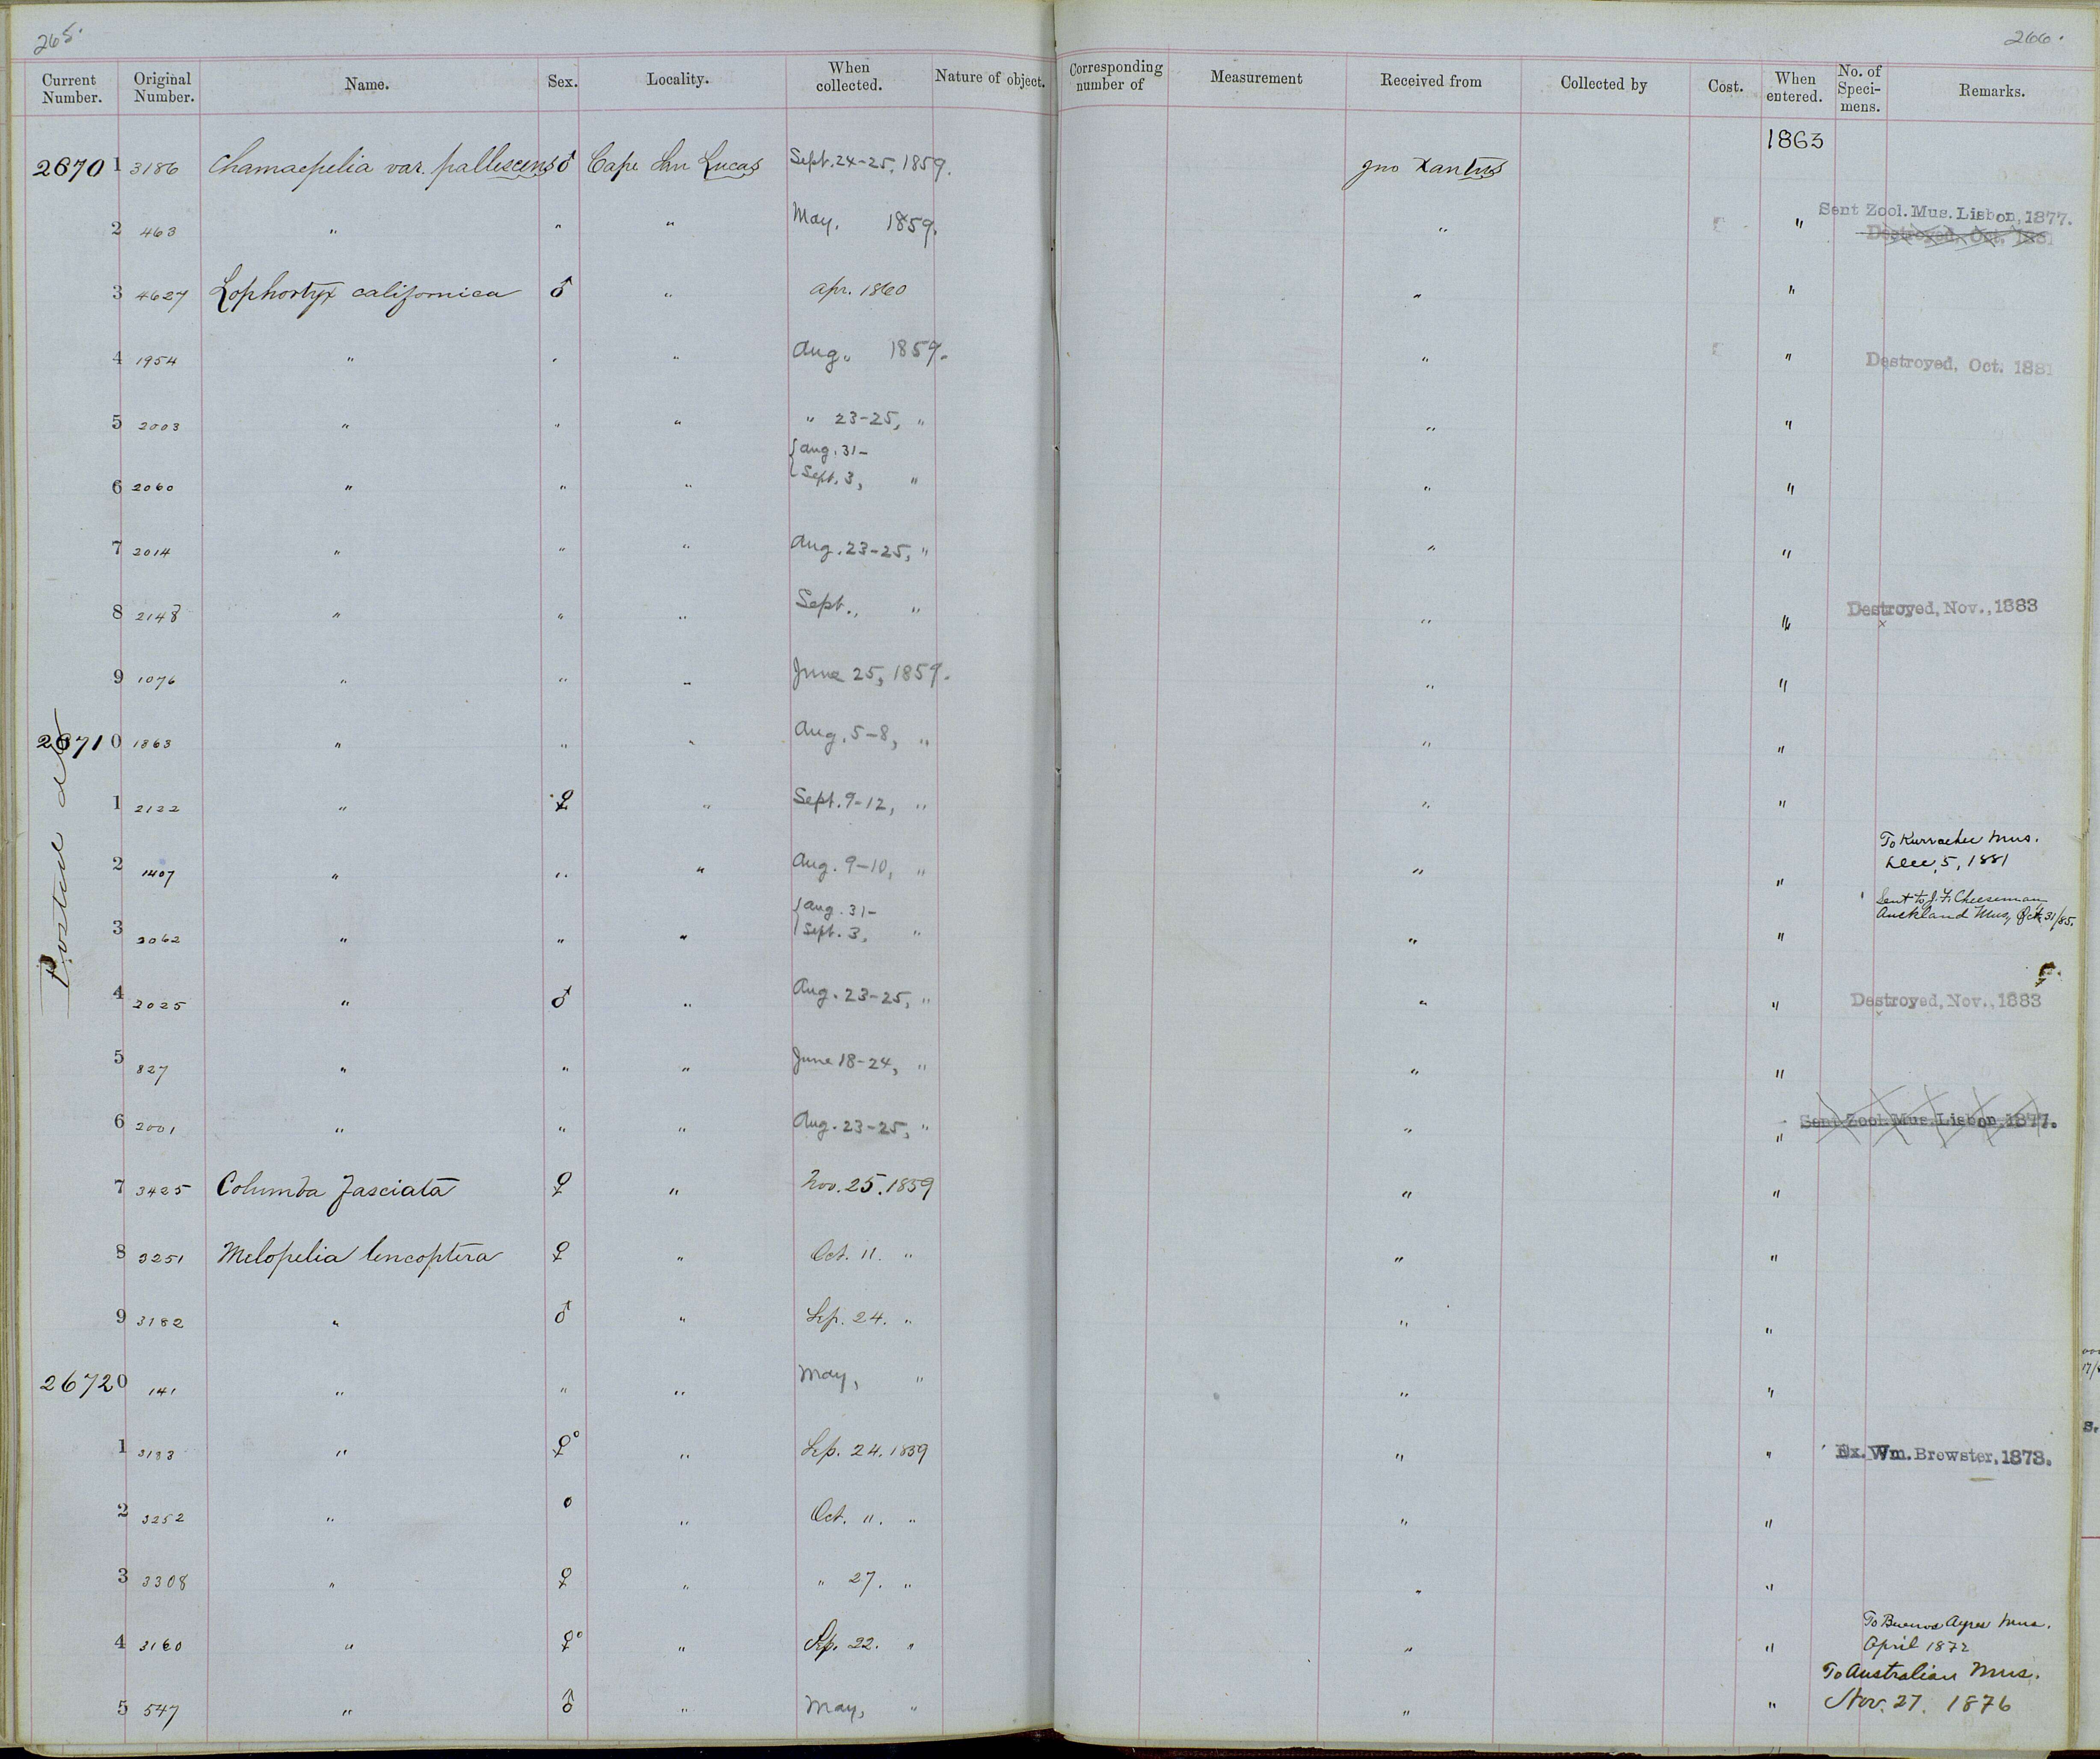 265.
266.
Current Number. Original Number. Name. Sex. Locality. When collected. Nature of object. Corresponding number of Measurement Received from Collected by Cost. When entered. No. of Speci- mens. Remarks.
1863
26701 3186 Chamaepelia var. pallescens ♂ Cape San Lucas Sept. 24-25, 1859. Jno Xantus
2 463 " " " May, 1859. " " Sent Zool. Mus. Lisbon, 1877.
Destroyed, Oct. 1881
3 4627 Lophortyx californica ♂ " Apr. 1860 " "
4 1954 " " " Aug., 1859. " " Destroyed, Oct. 1881
5 2003 " " " " 23-25, " " "
6 2060 " " " {Aug. 31-
Sept. 3, " " "
7 2014 " " " Aug. 23-25, " " "
8 2148 " " " Sept., " " " Destroyed, Nov., 1883
x
9 1076 " " " June 25, 1859. " "
26710 1863 " " " Aug. 5-8, " " "
1 2122 " ♀ " Sept. 9-12, " " "
2 1407 " " " Aug. 9-10, " " " To Kurrachee Mus.
Dec. 5, 1881
3 2062 " " " {Aug. 31-
Sept. 3, " " " Sent to J. F. Cheeseman
Auckland Mus, Oct. 31/85.
4 2025 " ♂ " Aug. 23-25, " " " Destroyed, Nov., 1883
x
5 827 " " " June 18-24, " " "
6 2001 " " " Aug. 23-25, " " " Sent Zool. Mus. Lisbon, 1877.
7 3425 Columba fasciata ♀ " Nov. 25. 1859 " "
8 3251 Melopelia leucoptera ♀ " Oct. 11. " " "
9 3182 " ♂ " Sep. 24. " " "
26720 141 " " " May, " " "
1 3183 " ♀° " Sep. 24. 1859 " " Ex. Wm. Brewster, 1873.
2 3252 " ° " Oct. 11. " " "
3 3308 " ♀ " " 27. " " "
4 3160 " ♀° " Sep. 22. " " " To Buenos Ayres Mus.
April 1872
5 547 " ♂ " May, " " " To Australian Mus.
Nov. 27. 1876
Posted